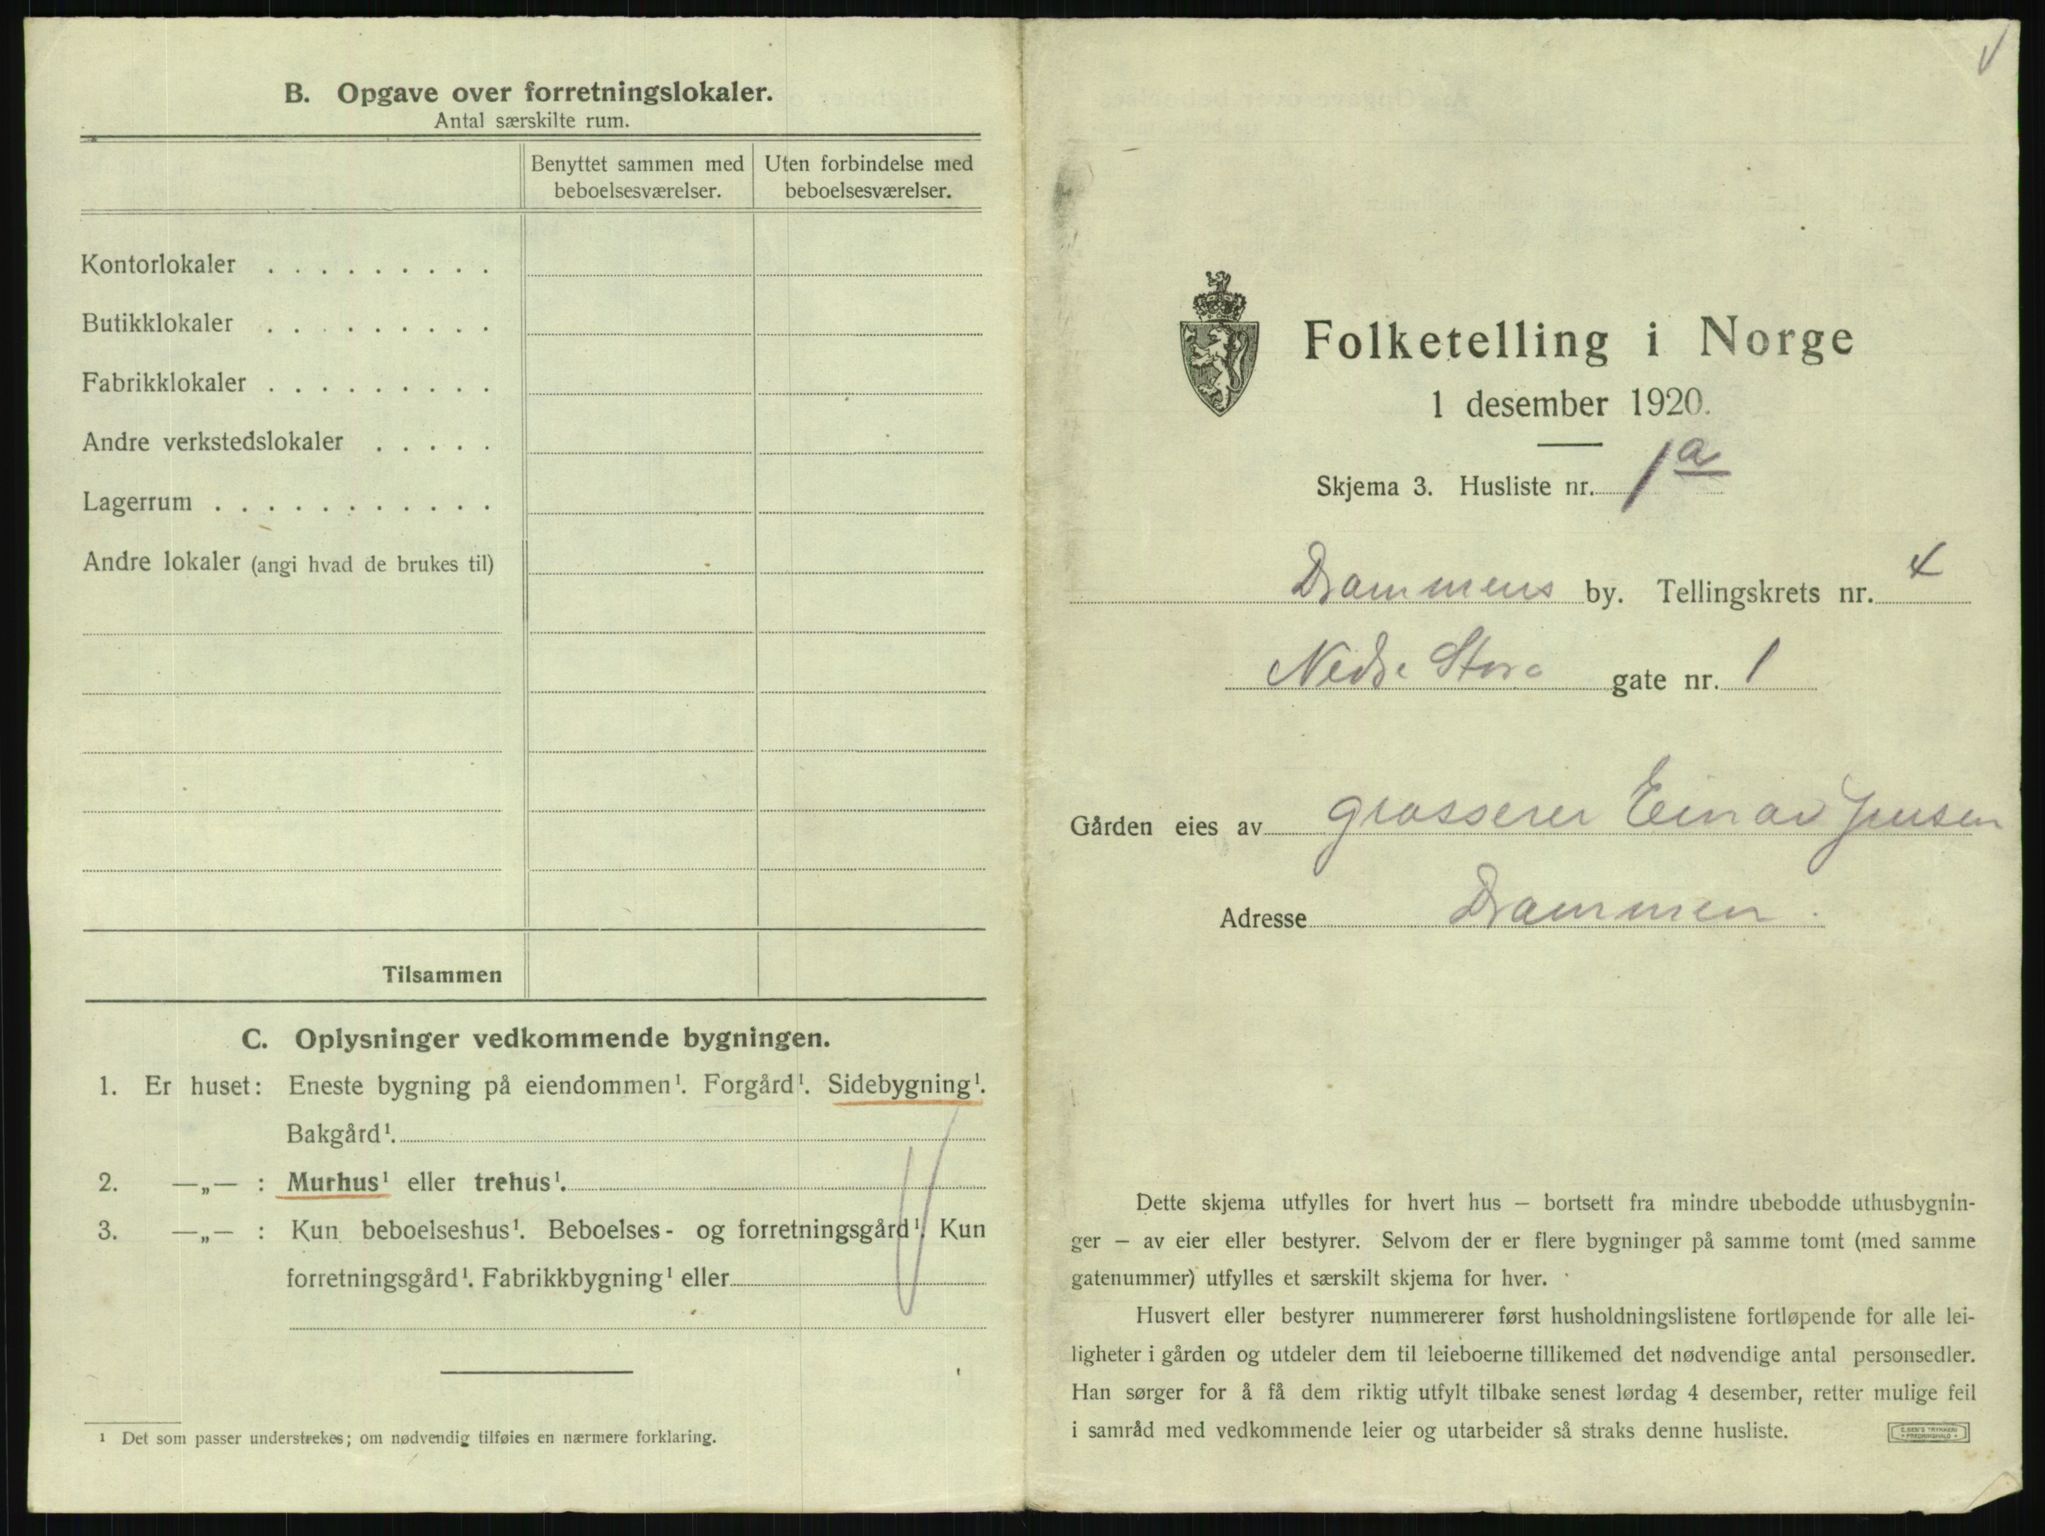 B. Opgave over forretningslokaler.
Antal særskilte rum.
Benyttet sammen med beboelsesværelser.
Uten forbindelse med beboelsesværelser.
Kontorlokaler . . . . . . . . .
Butikklokaler . . . . . . . . .
Fabrikklokaler . . . . . . . . .
Andre verkstedslokaler . . . . .
Lagerrum . . . . . . . . . . .
Andre lokaler (angi hvad de brukes til)
Tilsammen
C. Oplysninger vedkommende bygningen.
1. Er huset: Eneste bygning på eiendommen¹. Forgård¹. Sidebygning¹.
Bakgård¹.
2. —„— : Murhus¹ eller trehus¹.
3. —„— : Kun beboelseshus¹. Beboelses- og forretningsgård¹. Kun
forretningsgård¹. Fabrikkbygning¹ eller
¹ Det som passer understrekes; om nødvendig tilføies en nærmere forklaring.
Folketelling i Norge
1 desember 1920.
Skjema 3. Husliste nr. 1a
Drammens by. Tellingskrets nr. 4
Nedre Store gate nr. 1
Gården eies av grosserer Einar Jensen
Adresse Drammen.
Dette skjema utfylles for hvert hus – bortsett fra mindre ubebodde uthusbygnin-
ger – av eier eller bestyrer. Selvom der er flere bygninger på samme tomt (med samme
gatenummer) utfylles et særskilt skjema for hver.
Husvert eller bestyrer nummererer først husholdningslistene fortløpende for alle lei-
ligheter i gården og utdeler dem til leieboerne tillikemed det nødvendige antal personsedler.
Han sørger for å få dem riktig utfylt tilbake senest lørdag 4 desember, retter mulige feil
i samråd med vedkommende leier og utarbeider så straks denne husliste.